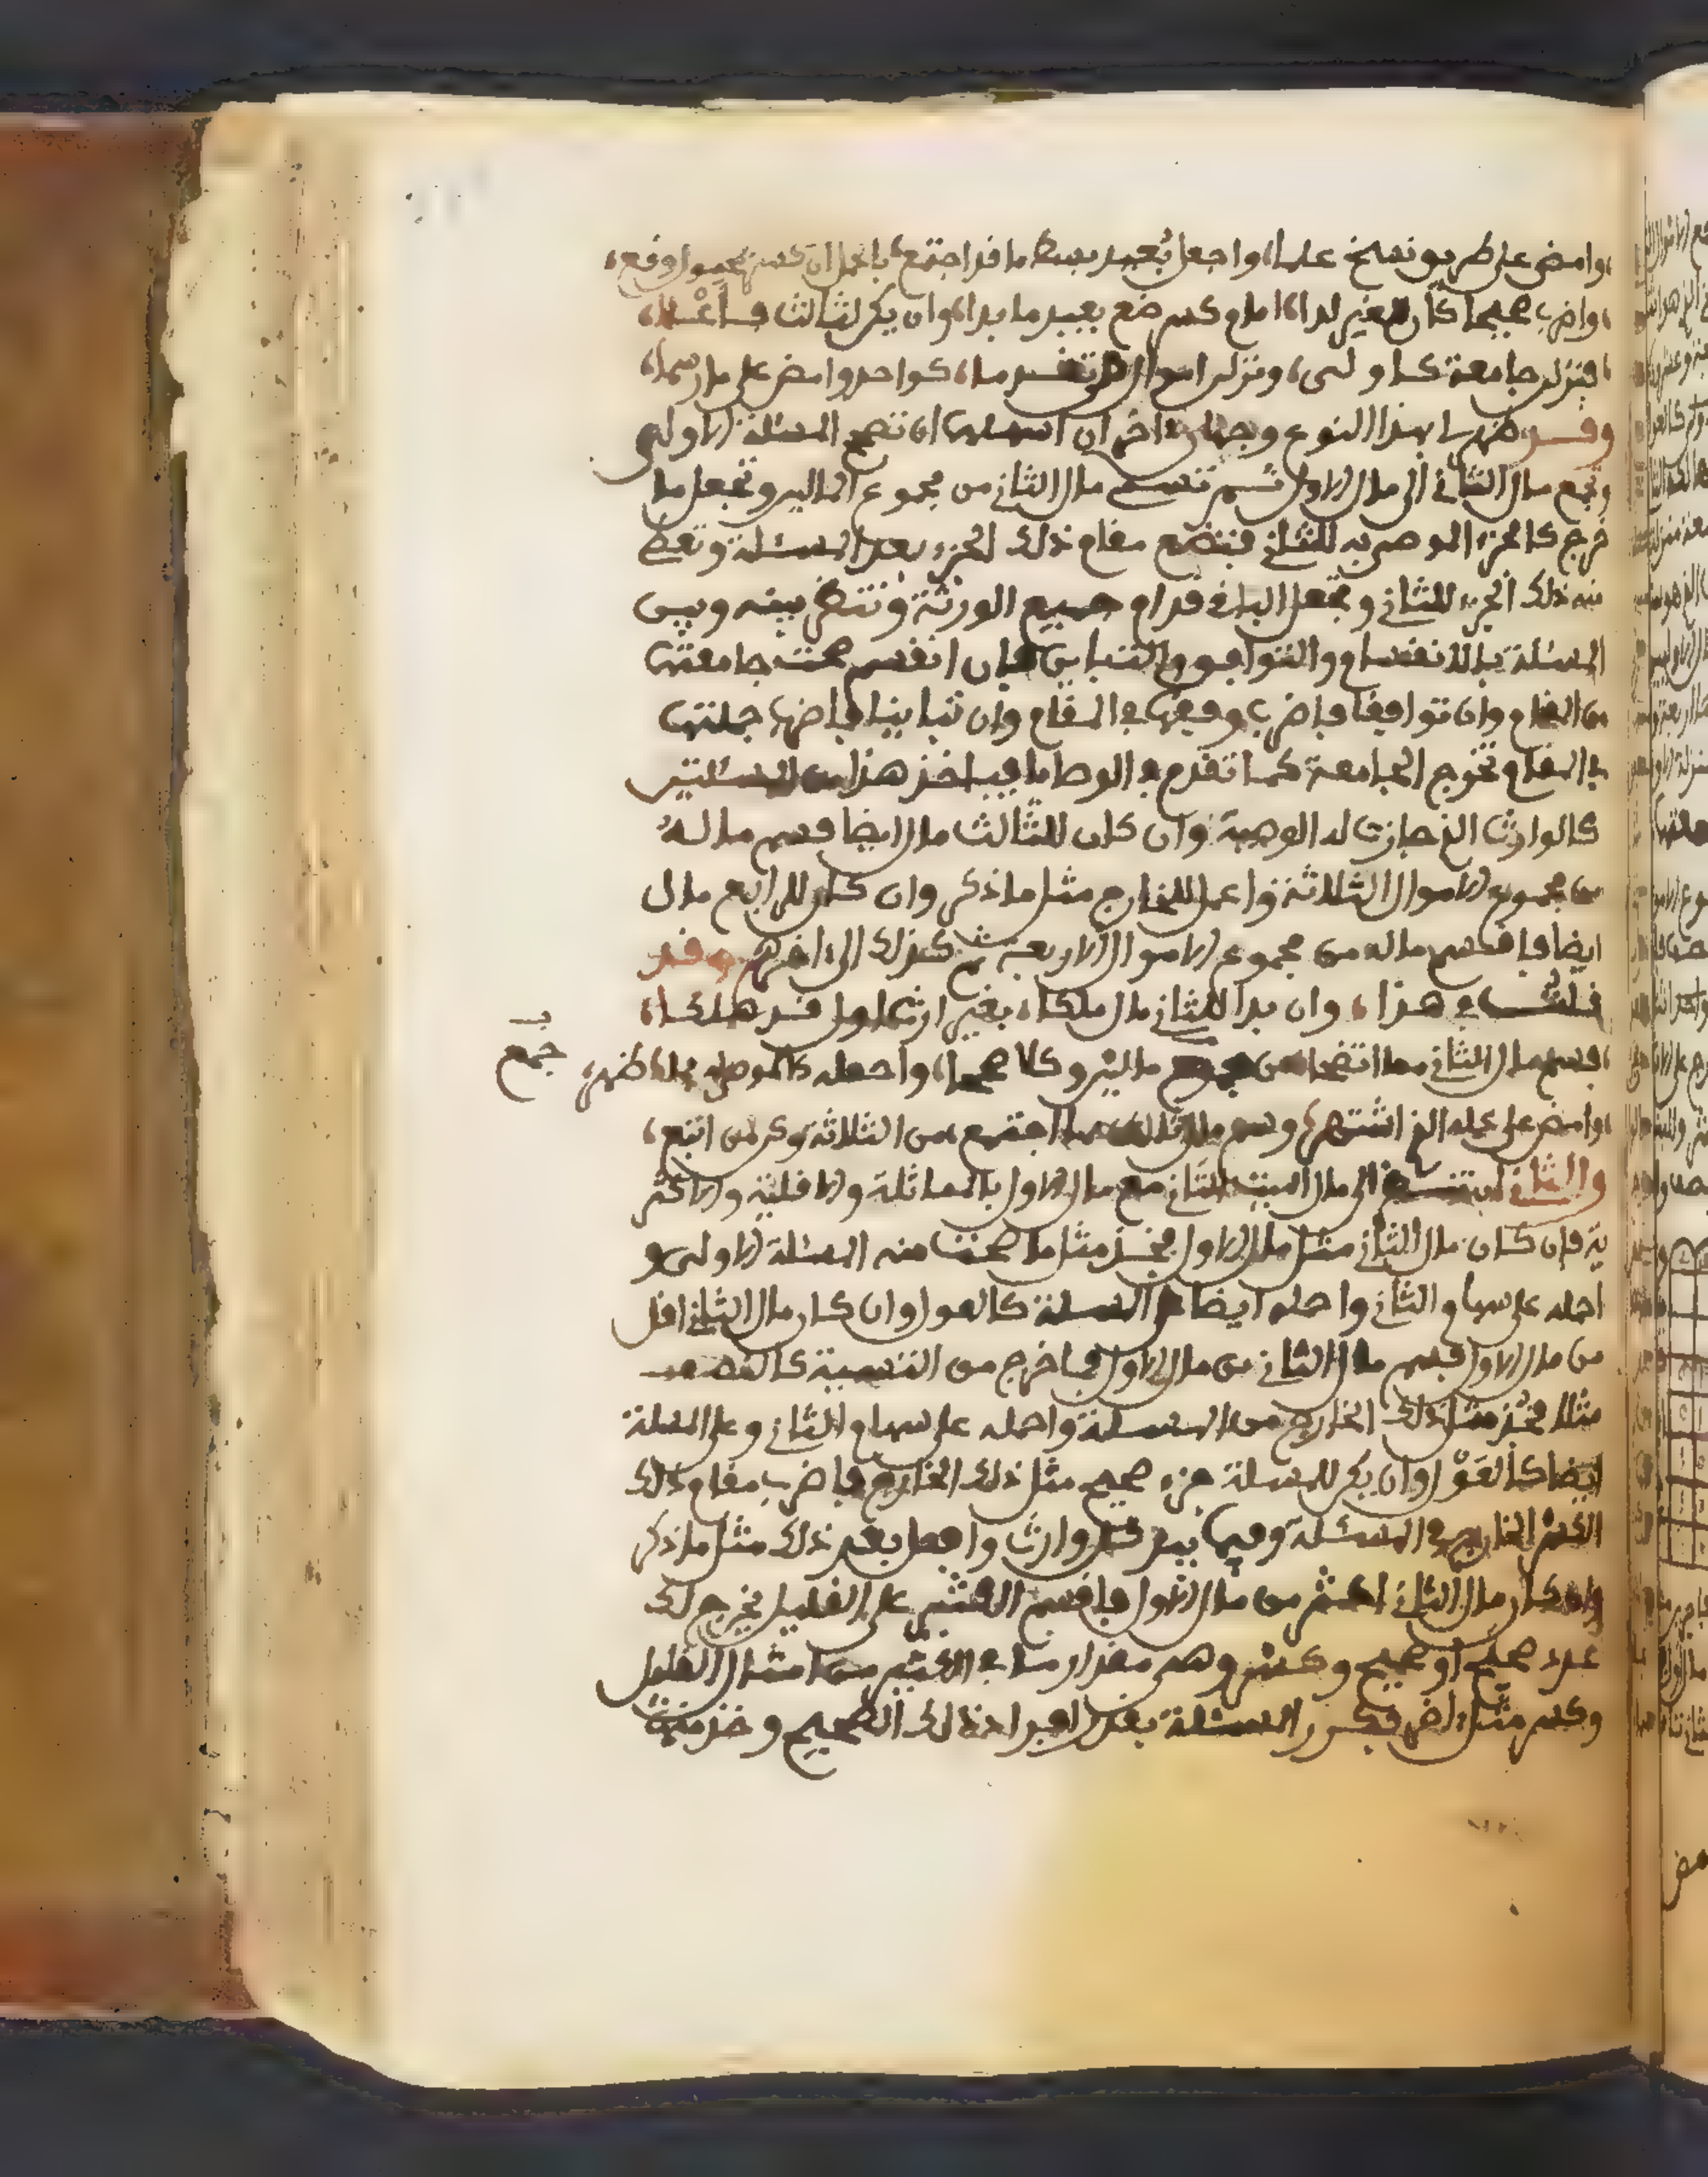 وامض على طريق نسخ علما واجعل بعيد بسط ما قد اجتمع
واضرب صحيحا كان لغير لدا امام كسر ضع بعيد ما بدا وان يكن لثالث
فنزلن جامعة كاولى ونزلن اموال من تقدما كواحد وامض على ما رسما
وقد ظهر لي بهذا النوع وجهان اخران اسهلهما ان تصح المسئلة الاولى
وتجمع مال الثاني الى مال الاول ثم تقسم مال الثاني من مجموع المالين وتجعل ما
خرج كالجزء الموصى به للثاني فتضع مقام ذلك الجزء بعد المسئلة وتعط
منه ذلك الجزء للثاني وتجعل الباقي قدام جميع الورثة وتنظر بينه وبين
المسئلة بالانقسام والتوافق والتباين فان انقسم صحت جامعتها
من المقام وان توافقا فاضرب وفقها في المقام وان تباينا فاضرب جملتها
في المقام تخرج الجامعة كما تقدم في الوصايا فياخذ هذا من المسئلتين
كالوارث الذي جازت له الوصية وان كان للثالث مال ايضا فسم ماله
من مجموع الاموال الثلاثة واعمل للخارج مثل ما ذكر وان كان للرابع مال
ايضا فاقسم ماله من مجموع الاموال الاربعة ثم كذلك الى اخرهم وقد
قلت في هذا وان بدا للثاني مال ملكا بغير ارث اول قد هلكا
فسم مال الثاني مما اتضحا من مجموع مالين وكلا صححا واجعله كالموصى به
جمع
وامض على عمله الذي اشتهر وسم مال ثالث مما اجتمع من الثلاثة وكن من اتبع
والثاني ان تنسب الى مال الميت الثاني مع مال الاول بالمماثلة والاقلية والاكثر
ية فان كان مال الثاني مثل مال الاول فخذ مثل ما صحت منه المسئلة الاولى و
احمله على سهام الثاني واحمله ايضا على المسئلة كالعول وان كان مال الثاني اقل
من مال الاول فسم مال الثاني من مال الاول فما خرج من التسمية كالنصف
مثلا فخذ مثل ذلك الخارج من المسئلة واحمله على سهام الثاني وعلى المسئلة
ايضا كالعول وان لم يكن للمسئلة جزء صحيح مثل ذلك الخارج فاضرب مقام ذلك
الكسر الخارج في المسئلة وفيما بيد كل وارث وافعل بعد ذلك مثل ما ذكر
وان كان مال الثاني اكثر من مال الاول فاقسم الكثير على القليل يخرج لك
عدد صحيح او صحيح وكسر وهو مقدار ما في الكثير من امثال القليل
وكسر مثل اخر فكرر المسئلة بقدر احاد ذلك الصحيح وخذ منها